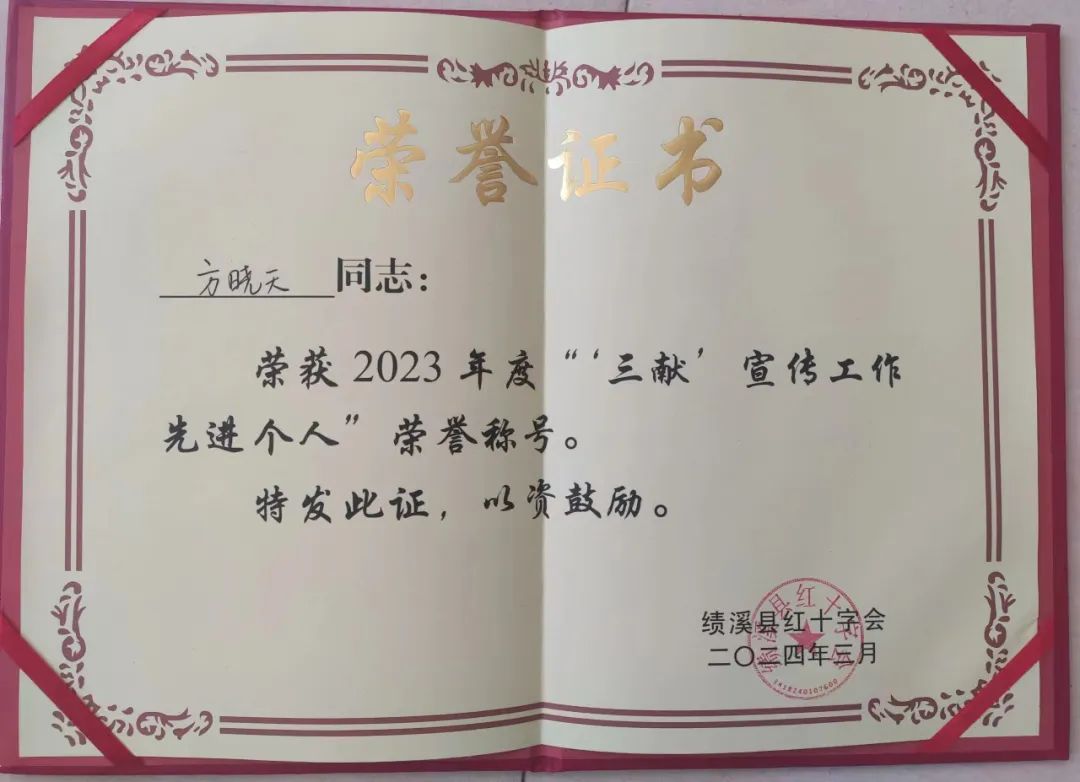 荣誉证书
方晓天 同志：
荣获 2023 年度“‘三献’宣传工作
先进个人”荣誉称号。
特发此证，以资鼓励。
绩溪县红十字会
二〇二四年三月
绩溪县红十字会